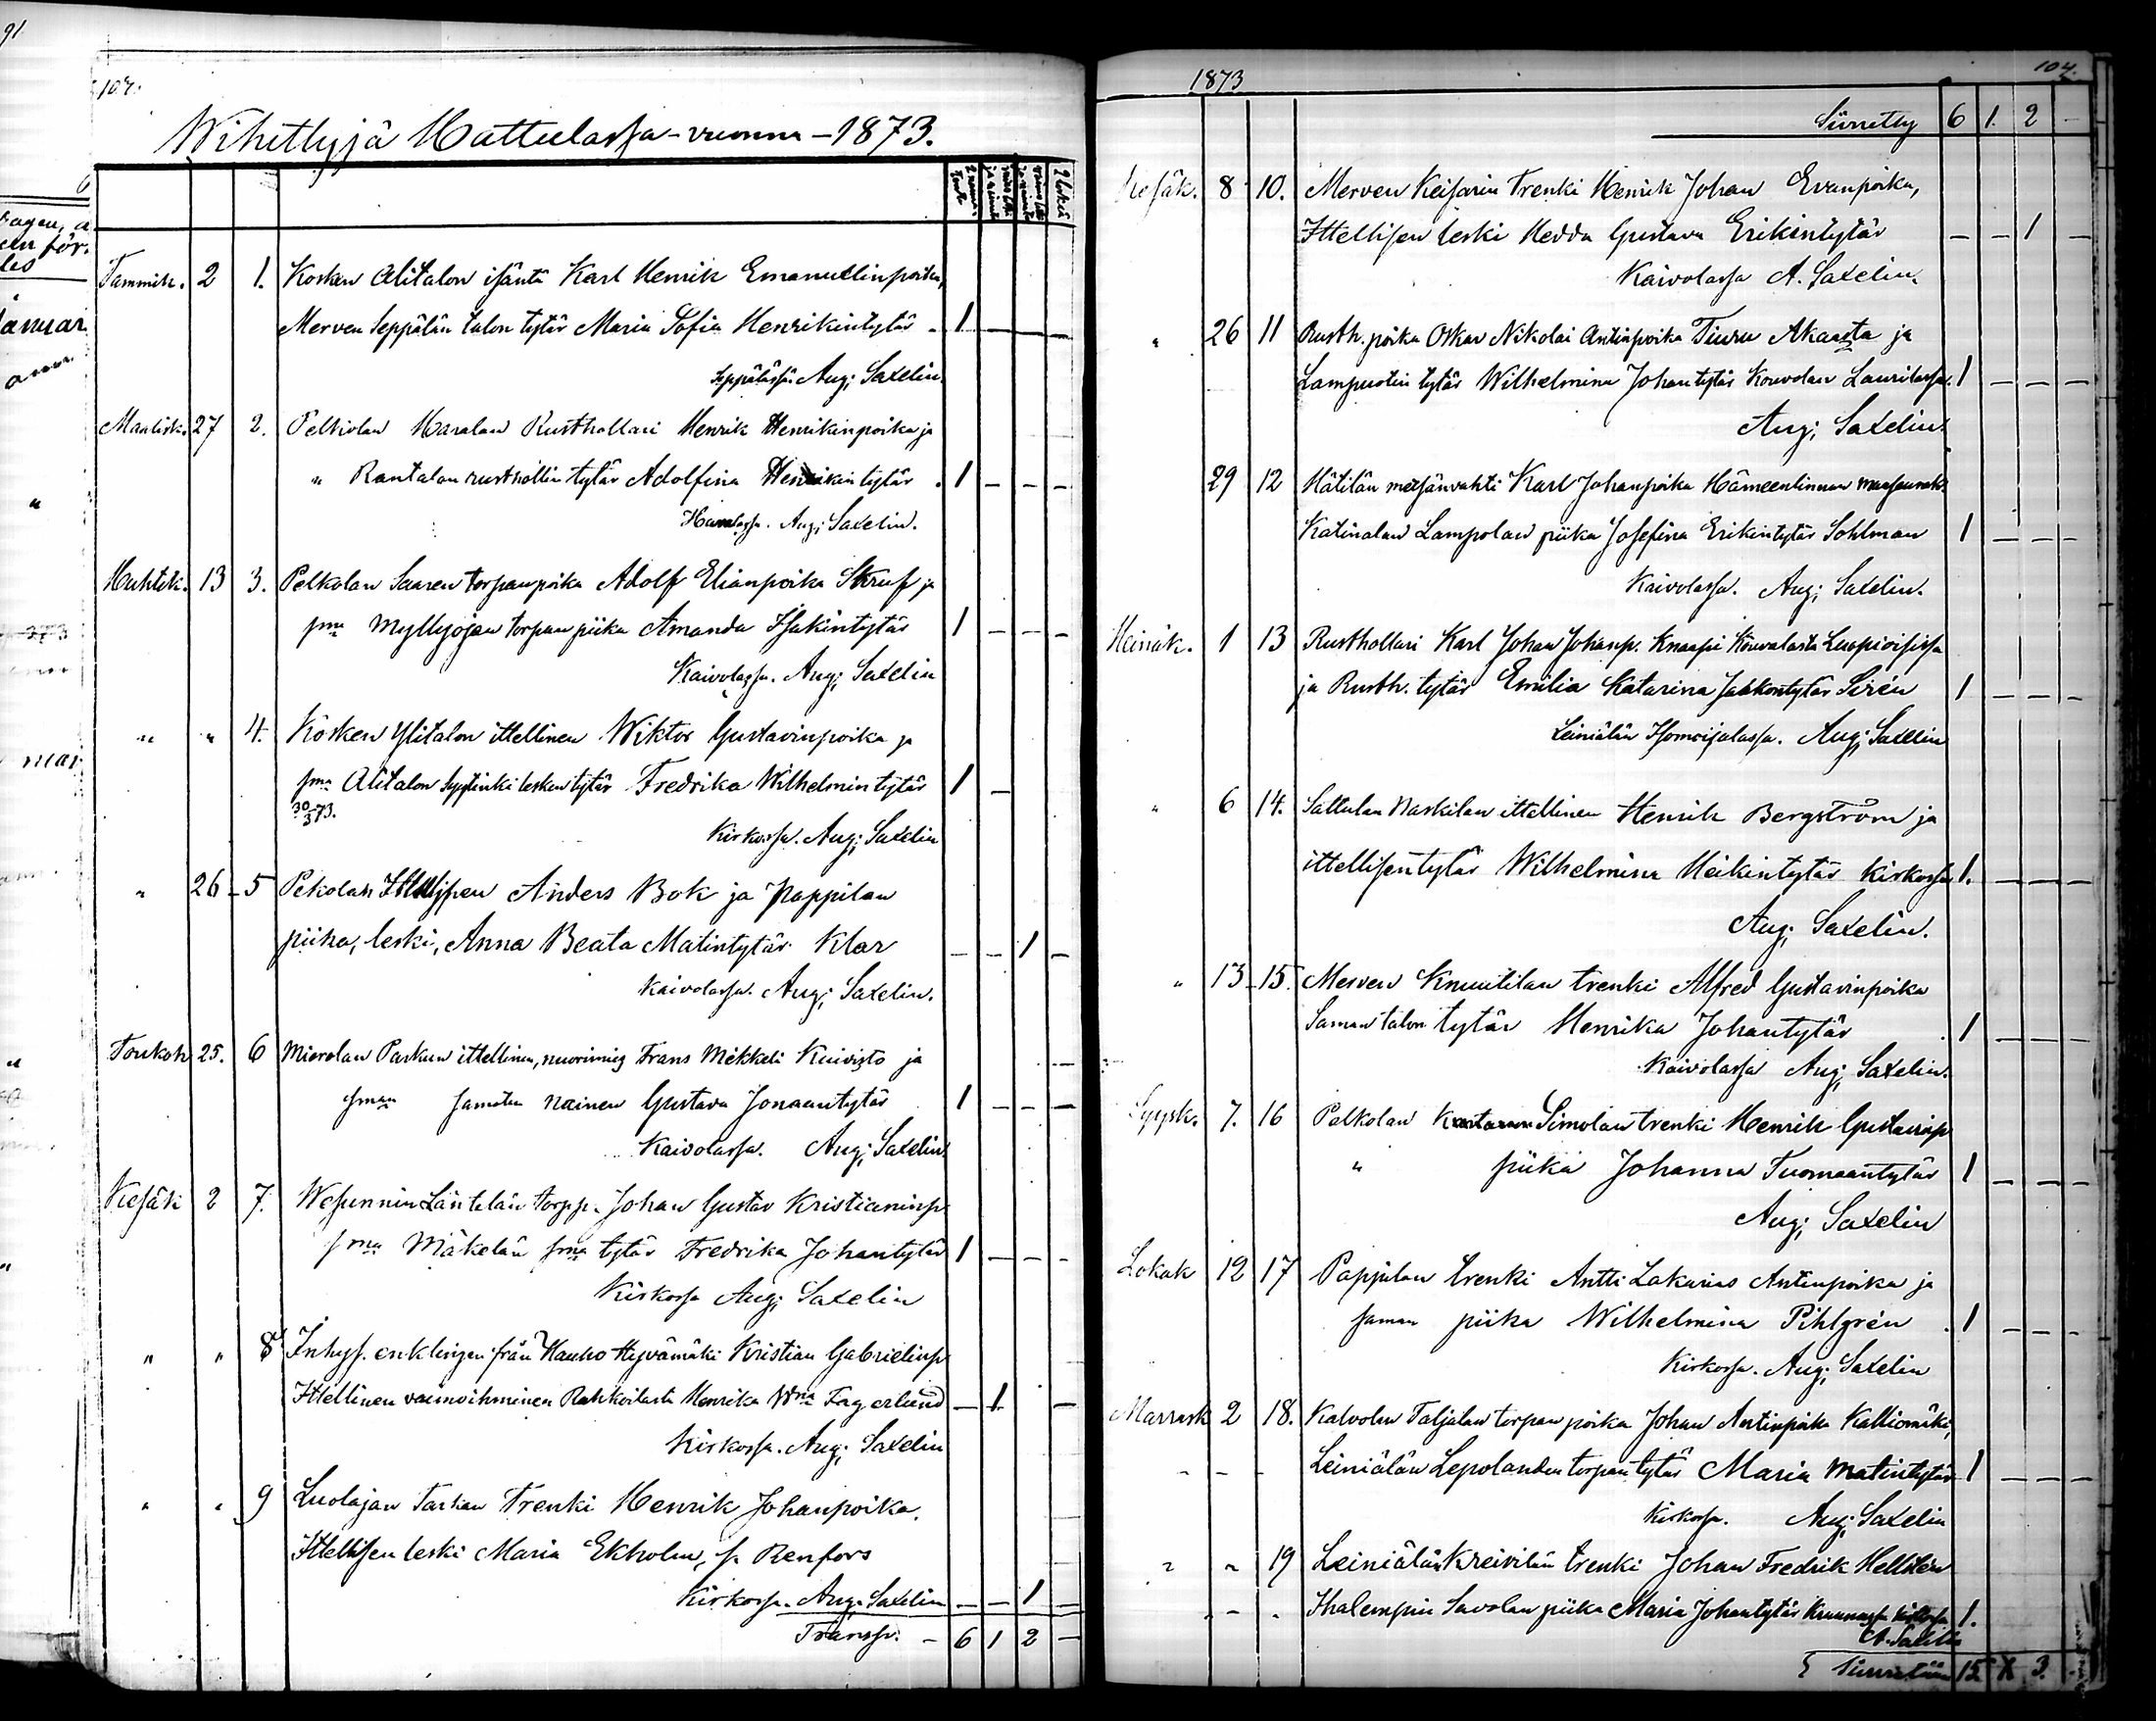 Wihittyjä Hattulassa - vuonna - 1873.
Tammik. 2 1. Kosken Alitalon isäntä Karl Henrik Emanuelinpoika,
Merven Seppälän talon tytär Maria Sofia Henrikintytär - 1 — — —
Seppälässä. Aug; Saxelin.
Maalisk. 27 2. Pelkolan Haralan Rusthollari Henrik Henrikinpoika ja
" Rantalan rusthollin tytär Adolfina Henrikin tytär . 1 — — —
Haralassa. Aug; Saxelin.
Huhtik. 13 3. Pelkolan Saaren torpanpoika Adolf Elianpoika Struf ja
sma Myllyojan torpan piika Amanda Isakintytär 1 — — —
Kaivolassa. Aug; Saxelin
" " 4. Kosken Ylitalon ittellinen Wiktor Gustavinpoika ja
sma Alitalon lesken tytär Fredrika Wilhelmintytär 1 —
30/3 73.
Kirkossa. Aug; Saxelin
" 26 - 5 Pekolan Anders Bok ja Pappilan
piika, leski, Anna Beata Matintytär Klar — — 1 —
Kaivolassa. Aug; Saxelin.
Toukok 25. 6 Mierolan Parkun ittellinen, nuorimies Frans Mikkeli Kuivisto ja
sman samaten nainen Gustava Jonaantytär 1 — — —
Kaivolassa. Aug; Saxelin
Kesäk 2 7. Wesunnin Läntelän torpp. Johan Gustav Kristianinp
sma Mäkelän sma tytär Fredrika Johantytär 1 — — —
Kirkossa Aug; Saxelin
" " 8 Inhys. enklingen från Hauho Hyvämäki Kristian Gabrielinp
Ittellinen vaimoihminen Henrika Wma Fagerlund — 1 —
Kirkossa. Aug; Saxelin
" " 9 Luolajan Tarkan Trenki Henrik Johanpoika,
Ittellisen leski Maria Ekholm, Renfors
Kirkossa. Aug. Saxelin — — 1 —
Transp. - 6 1 2 —
1873 104.
Siirretty 6 1. 2 -
Kesäk. 8 10. Merven Keisarin Trenki Henrik Johan Evanpoika,
Ittellisen leski Hedda Gustava Erikintytär — — 1 —
Kaivolassa A. Saxelin.
" 26 11 Rusth. poika Oskar Nikolai Antinpoika Tiuru Akaasta ja
Lampuotin tytär Wilhelmina Johantytär Laurilassa. 1 — — —
Aug; Saxelin.
29 12 Hätilän metsänvahti Karl Johanpoika Hämeenlinnan
Katinalan Lampolan piika Josefina Erikintytär Sohlman 1 — — —
Kaivolassa. Aug; Saxelin.
Heinäk. 1 13 Rusthollari Karl Johan Johanp. Knaapi
ja Rusth. tytär Emilia Katarina Jaakontytär Sirén 1 — — —
Leiniälän Aug; Saxelin
" 6 14. Sattulan Naskilan ittellinen Henrik Bergström ja
ittellisentytär Wilhelmina Heikintytär Kirkossa 1. — — —
Aug; Saxelin.
" 13 - 15. Merven Knuutilan trenki Alfred Gustavinpoika
Saman talon tytär Henrika Johantytär . 1 — — —
Kaivolassa Aug; Saxelin.
Syysk. 7. 16 Pelkolan Simolan trenki Henrik Gustavinp
" piika Johanna Tuomaantytär 1 — — —
Aug; Saxelin
Lokak 12 17 Pappilan trenki Antti Sakarias Antinpoika ja
saman piika Wilhelmina Pihlgrén . 1 — — —
Kirkossa. Aug; Saxelin
Marrask 2 18. Kalvolan Taljalan torpan poika Johan Antinpoika Kalliomäki,
- - - Leiniälän Lepolanden torpan tytär Maria Matintytär 1 — — —
Kirkossa. Aug; Saxelin
" " 19 Leiniälän Kreivilän trenki Johan Fredrik Hellstén
- - - Ihalempin Savolan piika Maria Johantytär 1.
A. Saxelin
Siirretään 15 3. -